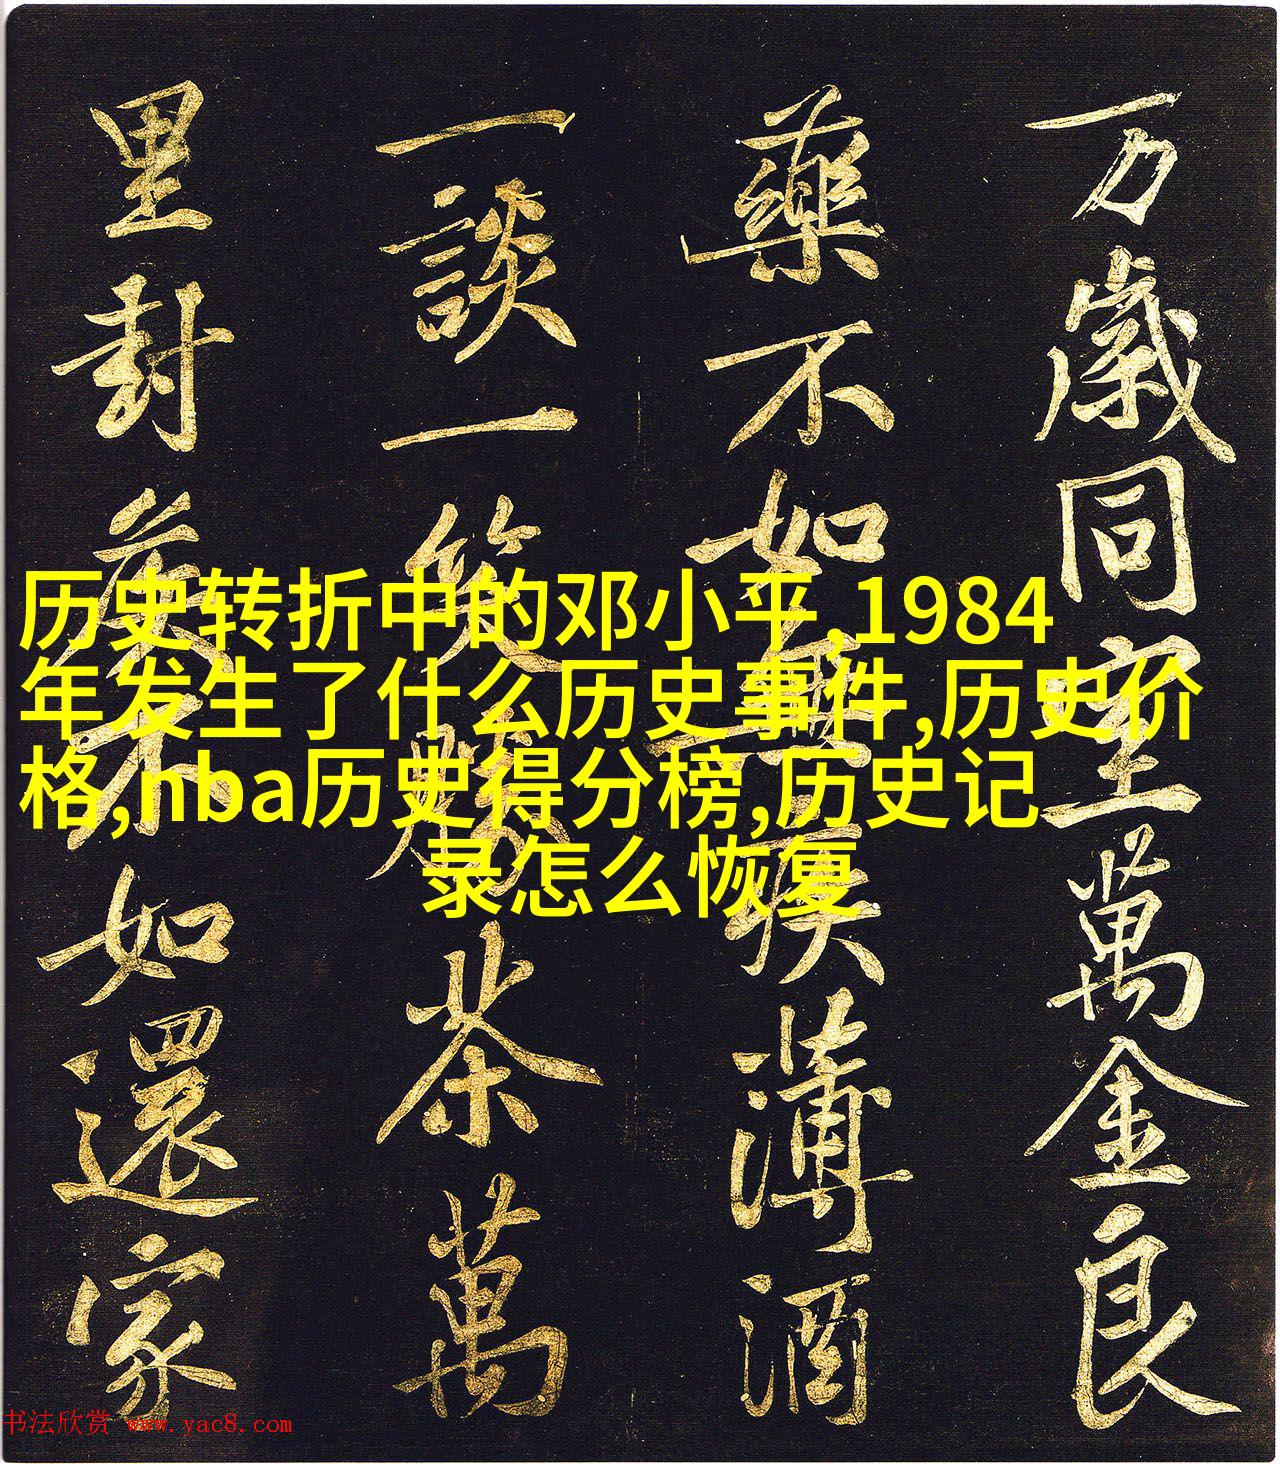 万歲同堂萬金良
藥不如無疾薄酒
一談一笑勝茶萬
里封矦不如還家
历史转折中的邓小平,1984
年发生了什么历史事件,历史价
格,nba历史得分榜,历史记
录怎么恢复
书法欣赏 www.yac8.com